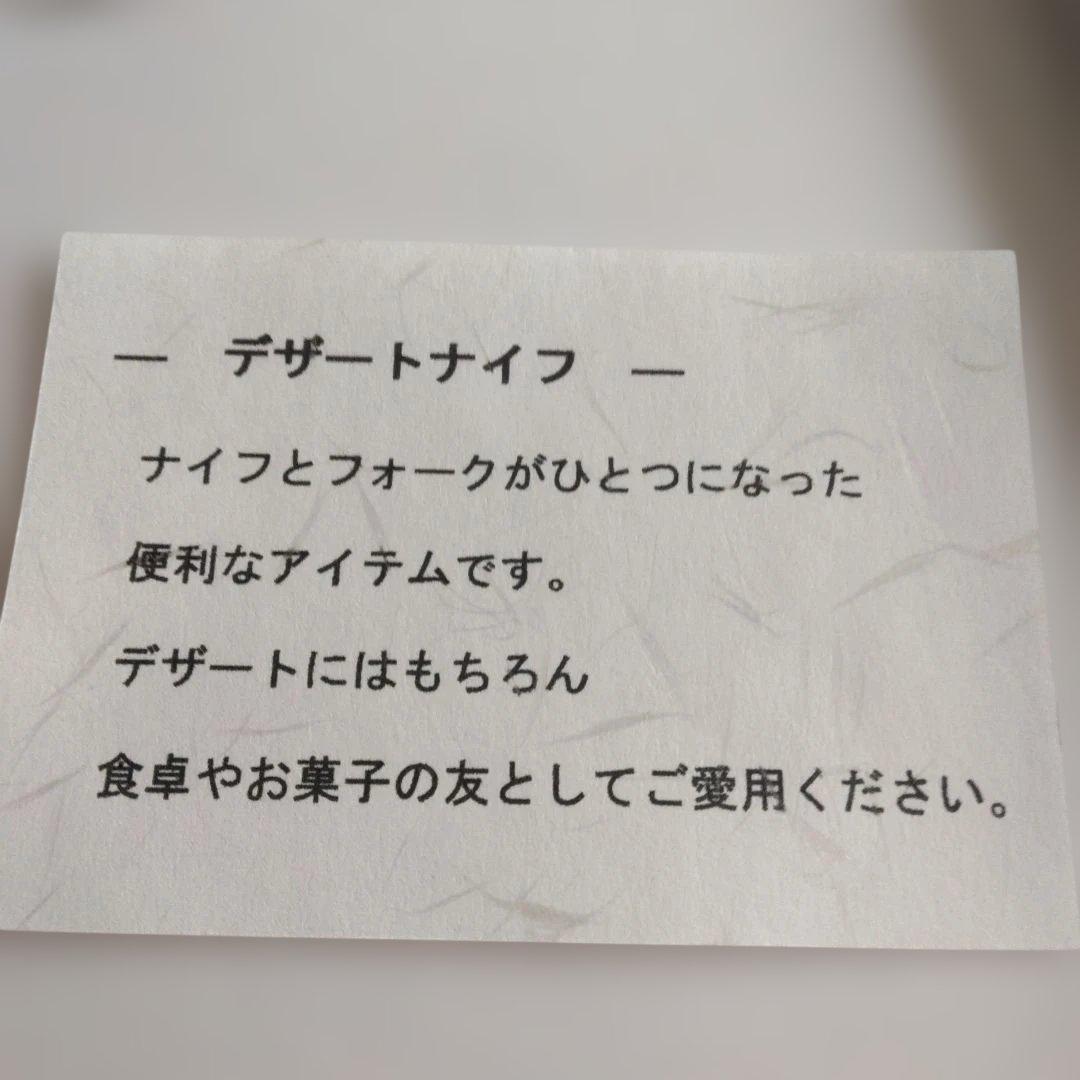 ― デザートナイフ ―
ナイフとフォークがひとつになった
便利なアイテムです。
デザートにはもちろん
食卓やお菓子の友としてご愛用ください。